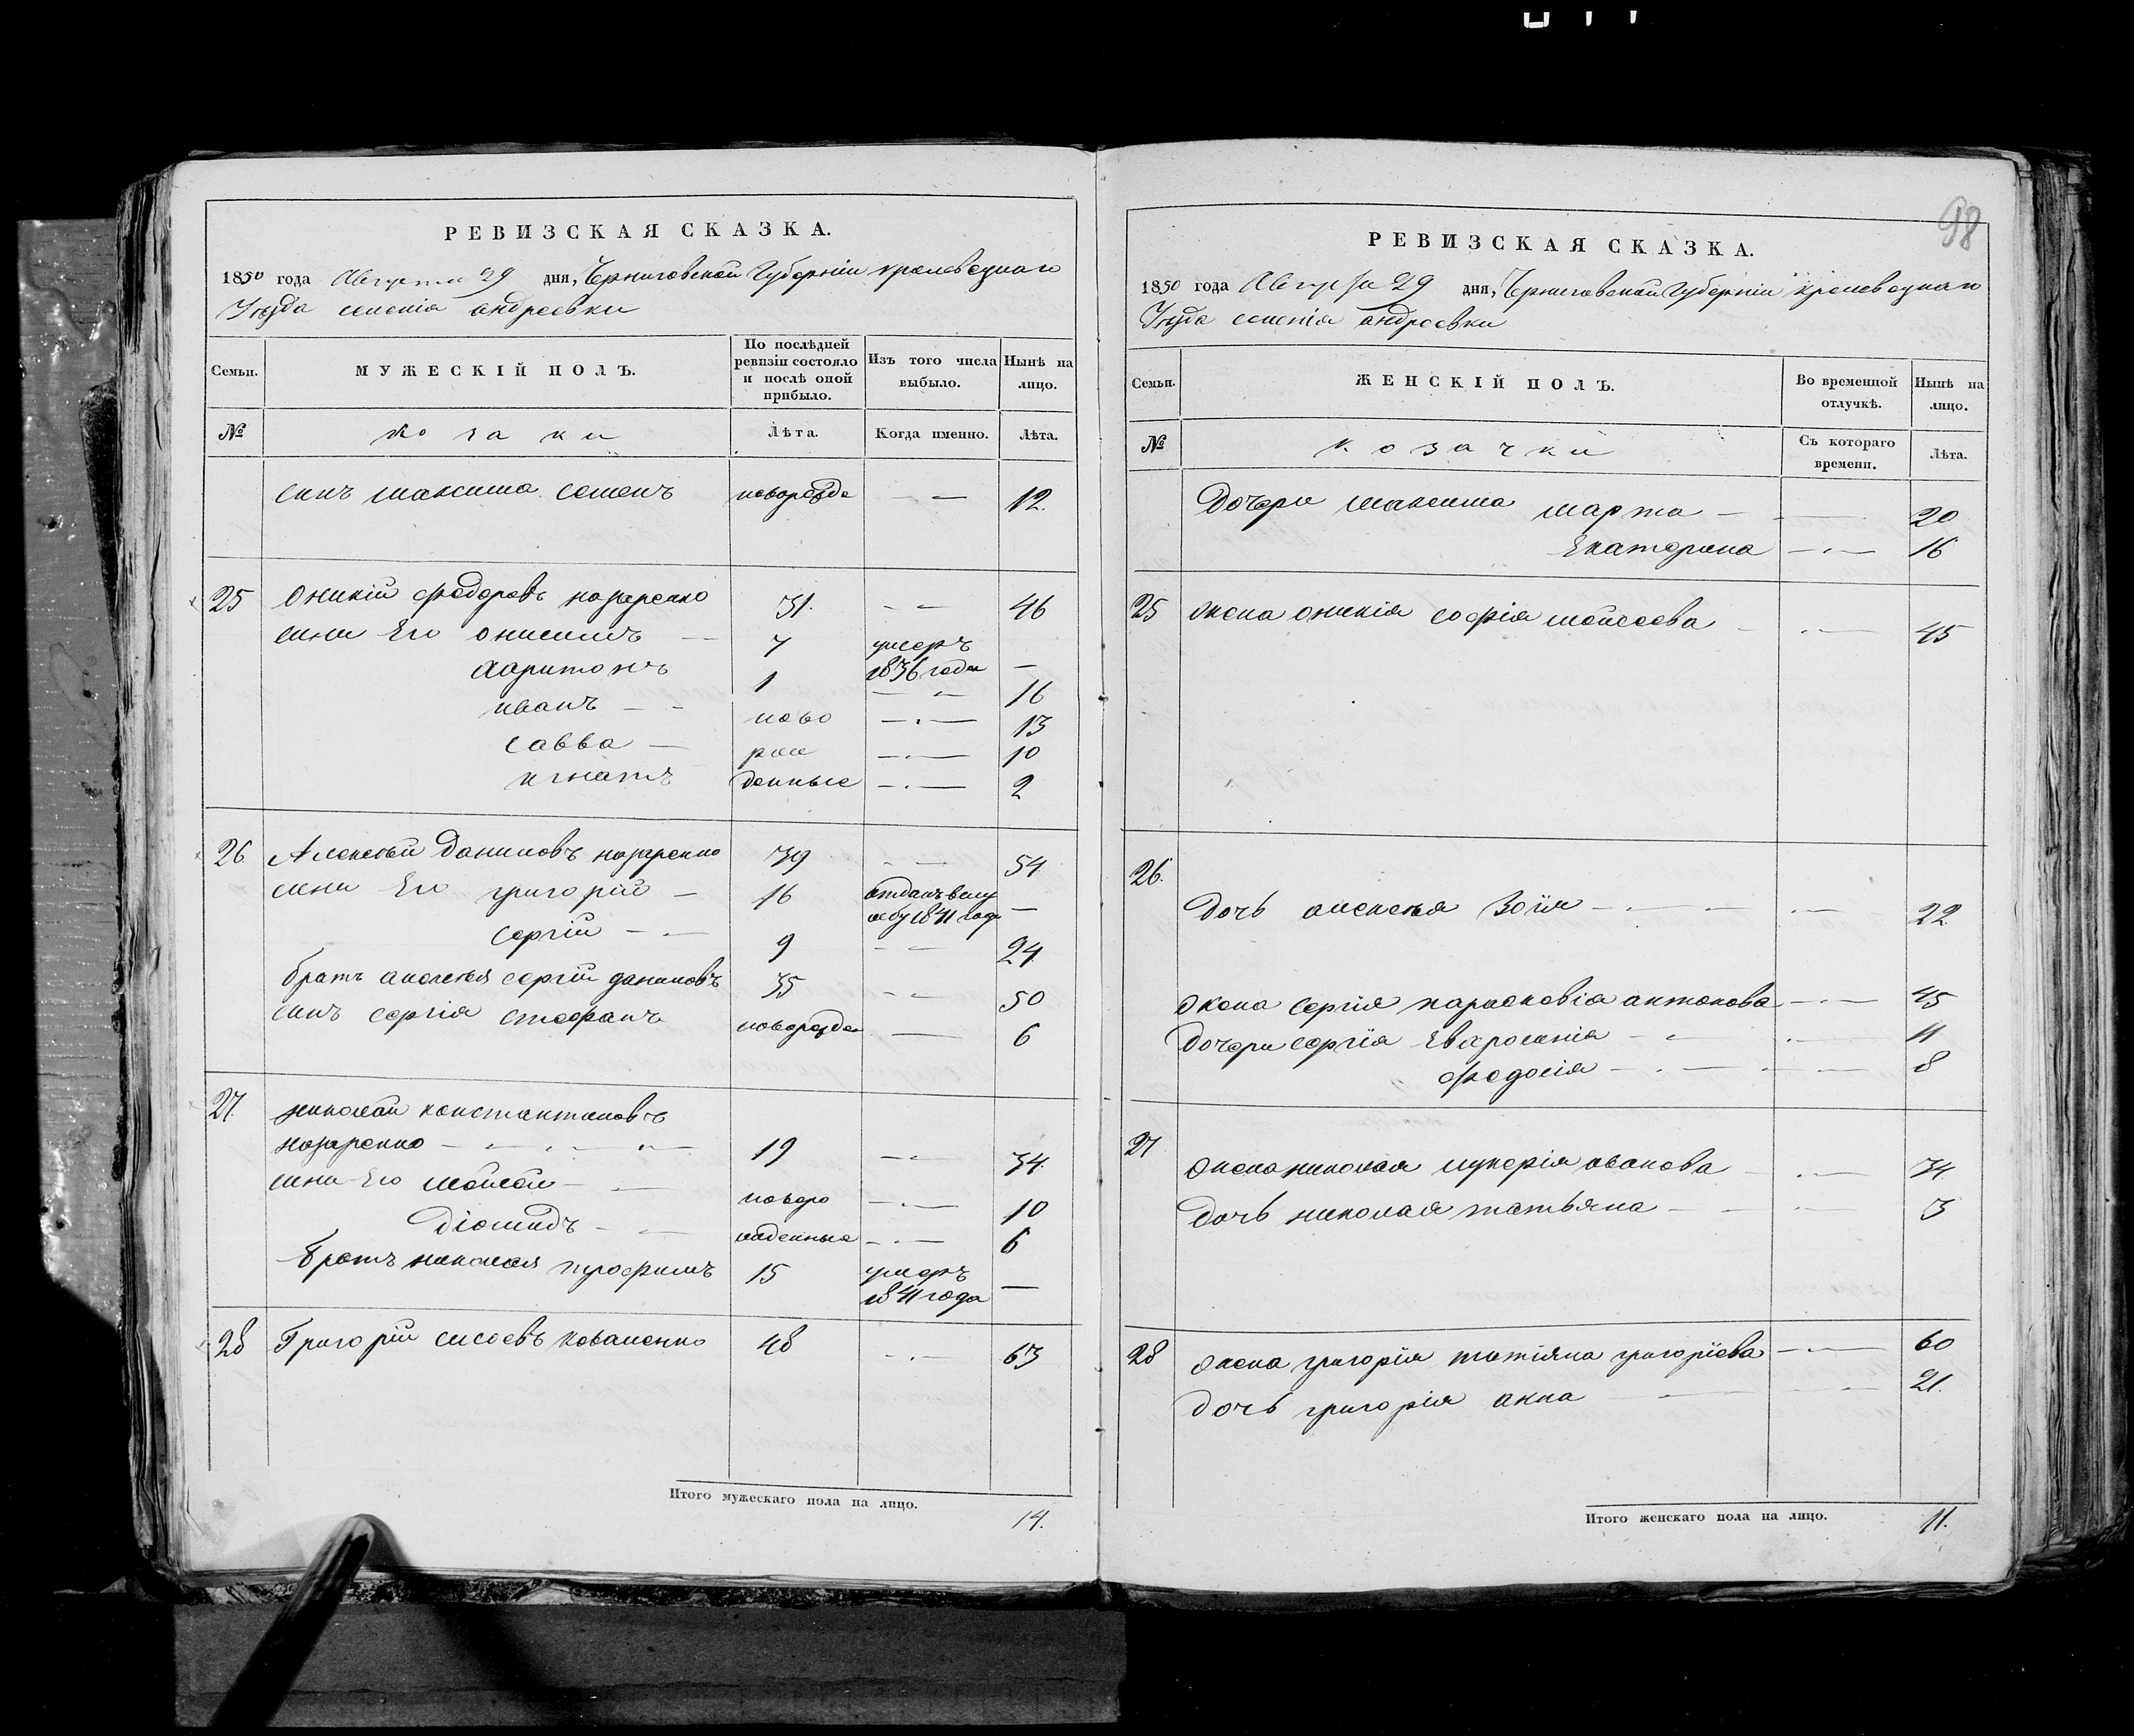 РЕВИЗСКАЯ СКАЗКА.
1850 года Августа 29 дня, Черниговской Губерніи кролевецкаго
Уезда селенія андреевки
Семьи.
МУЖЕСКІЙ ПОЛЪ.
По послѣдней ревизіи состояло и послѣ оной прибыло.
Изъ того числа выбыло.
Нынѣ на лицо.
№
козаки
Лѣта.
Когда именно.
Лѣта.
сынъ максима семенъ новорожде — — 12.
25 Оникій федоровъ назаренко 31. — — 46
сыни Его онисимъ — 7 умеръ
1836 года —
Харитонъ 1 — — 16
иванъ — — ново — — 13
савва — рож — — 10
игнатъ денные — — 2
26 Алексѣй Даниловъ назаренко 39 — — 54
сыни Его григорій — 16 отданъ в слу
жбу 1841 года —
сергій — — 9 — — 24
братъ алексѣя сергій даниловъ 35 — — 50
сынъ сергія стефанъ новорожде — 6
27. николай константиновъ
назаренко — — — 19 — — 34.
сыни Его мойсей — — новоро — — 10
Діомидъ — — жденные — — 6
братъ николая трофимъ 15 умеръ
1841 года —
28 Григорій сисоевъ коваленко 48 — — 63
Итого мужескаго пола на лицо. 14.
98
РЕВИЗСКАЯ СКАЗКА.
1850 года Августа 29 дня, Черниговской Губерніи кролевецкаго
Уезда селенія андреевки
Семьи.
ЖЕНСКІЙ ПОЛЪ.
Во временной отлучкѣ.
Нынѣ на лицо.
№
козачки
Съ котораго времени.
Лѣта.
Дочери максима марта — — 20
Екатерина — — 16
25 жена оникія софія мойсеева — — 45
26.
Дочь алексѣя Зоія — — — — 22
жена сергія парасковія антонова — — 45
Дочери сергія Евфросинія — — — 11
федосія — — — — 8
27
жена николая лукерія иванова — — 34.
дочь николая татьяна — — — 3
28 жена григорія татіяна григоріева — — 60
дочь григорія анна — — 21.
Итого женскаго пола на лицо. 11.